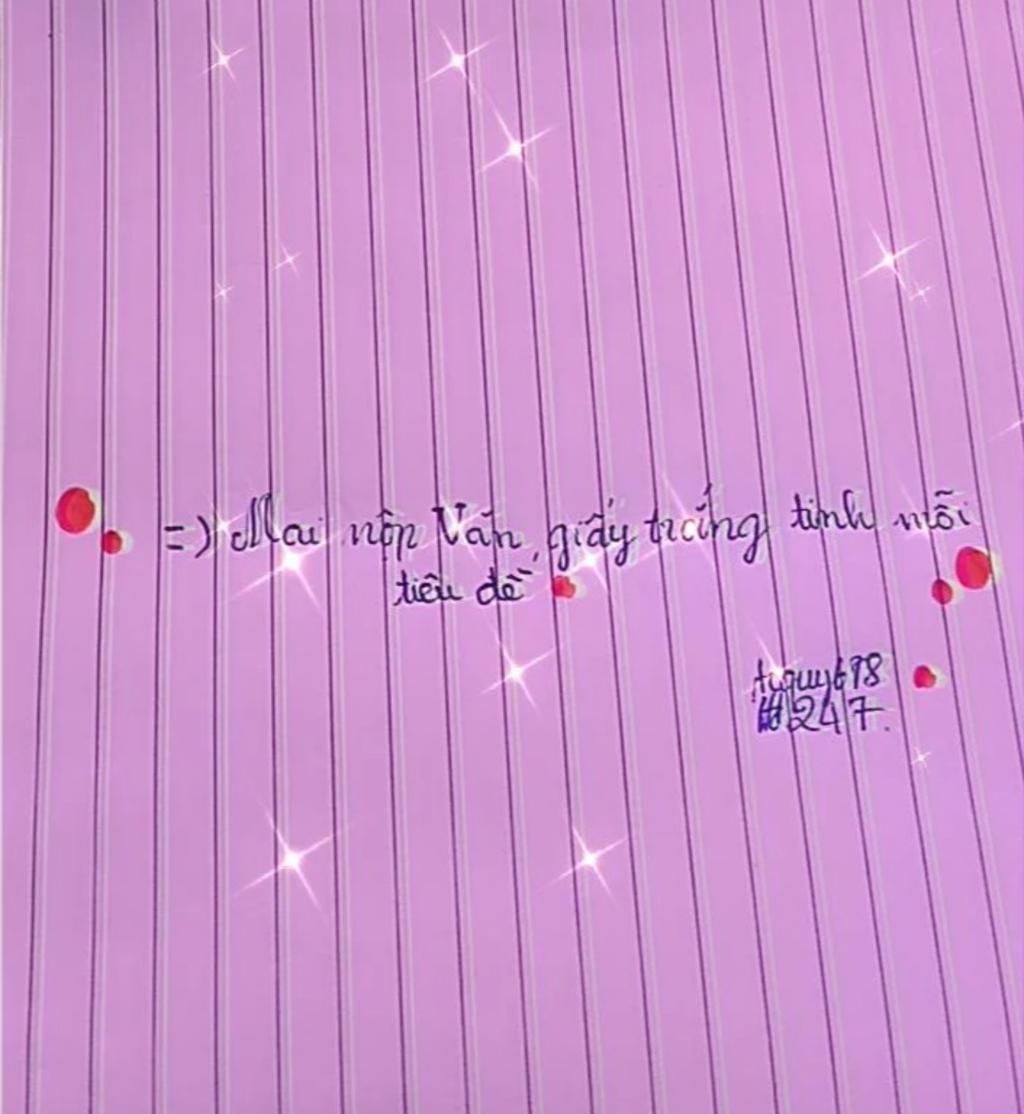 =) Mai nộp Văn, giấy trắng tinh mỗi
tiêu đề
247.